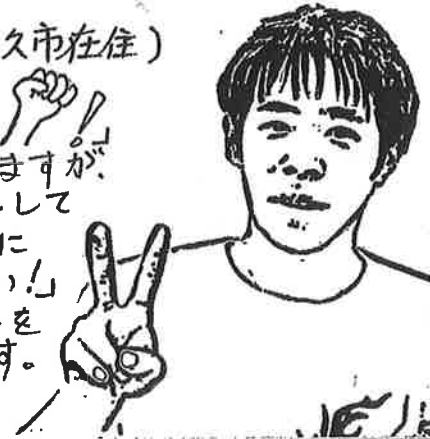 久市在住)
!」
ますが、
して
に
い!」
を
す。